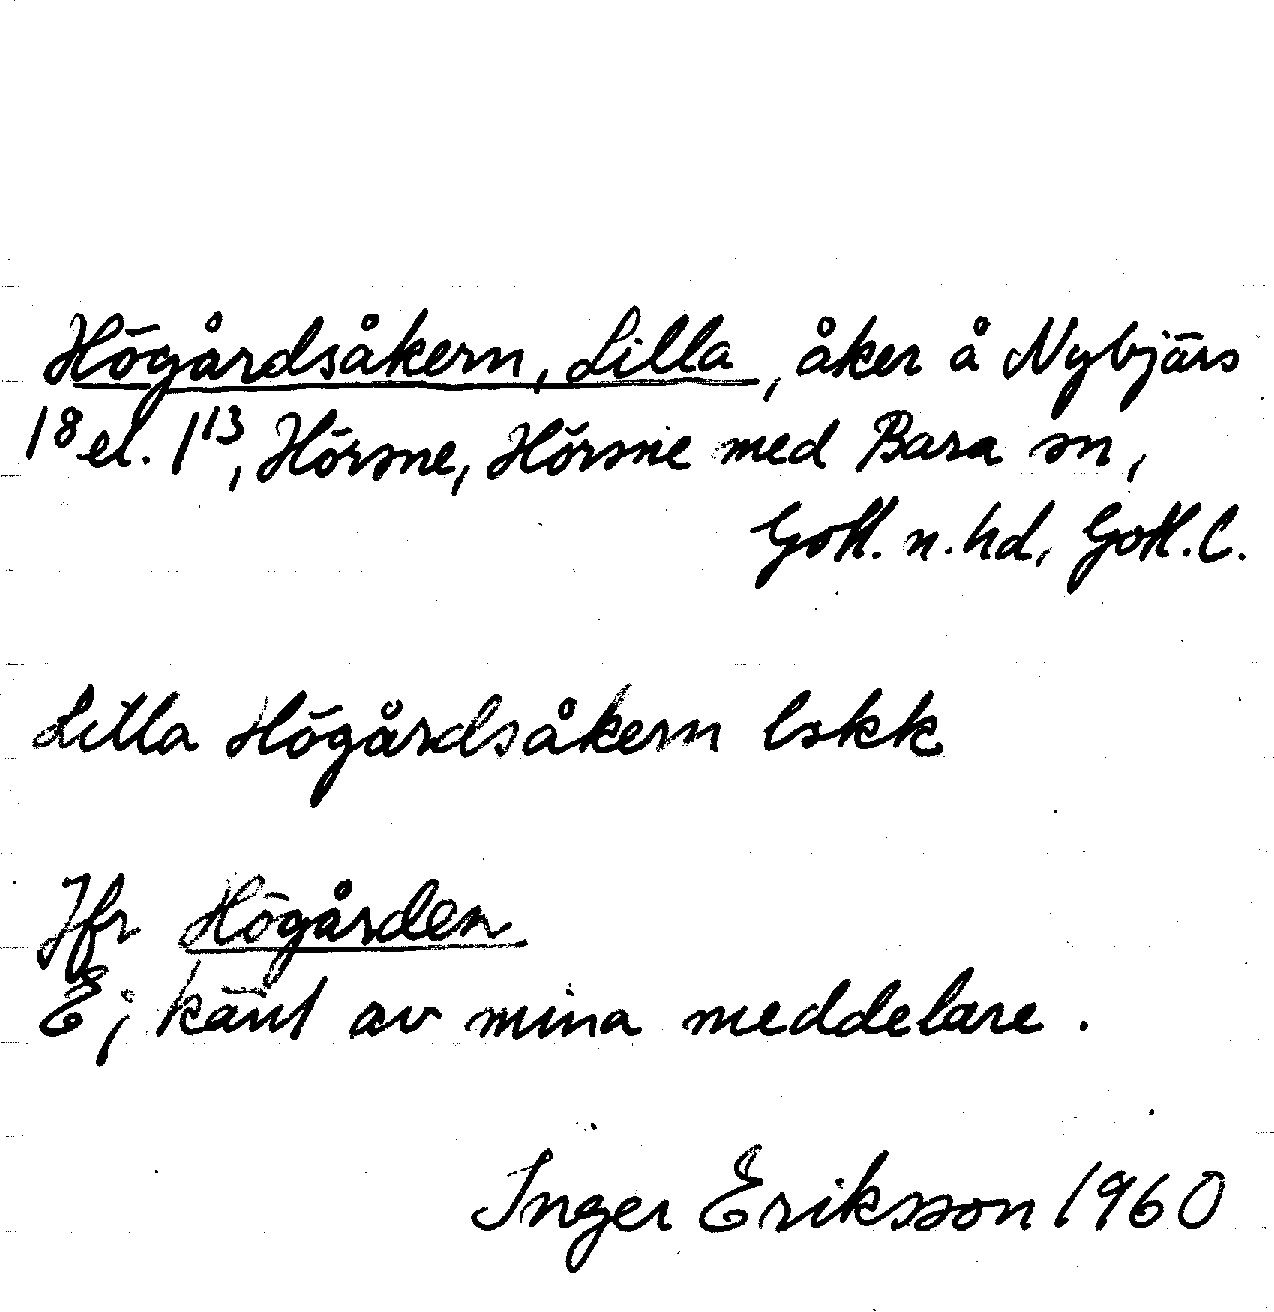 Högårdsåkern, Lilla, åker å Nybjärs
1⁸ el. 1¹³, Hörsne, Hörsne med Bara sn,
Gotl. n. hd, Gotl. l.
Lilla Högårdsåkern lskk
Jfr Högården
Ej känt av mina meddelare.
Inger Eriksson 1960